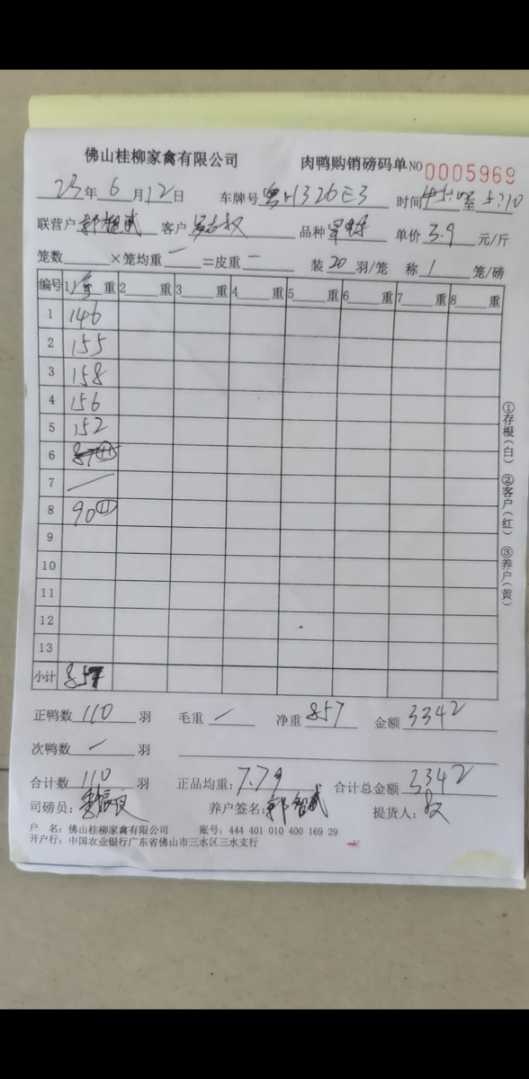 佛山桂柳家禽有限公司 肉鸭购销磅码单 NO 0005969
23年6月12日 车牌号 粤H326E3 时间 至
联营户 客户 品种 单价 3.9 元/斤
笼数 ×笼均重 一 =皮重 一 装 20 羽/笼 称 1 笼/磅
编号 1 重 2 重 3 重 4 重 5 重 6 重 7 重 8 重
1 146
2 155
3 158
4 156
5 152
6
7 /
8 90 (11)
9
10
11
12
13
小计 857
①存根(白) ②客户(红) ③养户(黄)
正鸭数 110 羽 毛重 / 净重 857 金额 3342
次鸭数 / 羽
合计数 110 羽 正品均重: 7.79 合计总金额 3342
司磅员: 养户签名: 提货人:
户 名: 佛山桂柳家禽有限公司 账号: 444 401 010 400 169 29
开户行: 中国农业银行广东省佛山市三水区三水支行